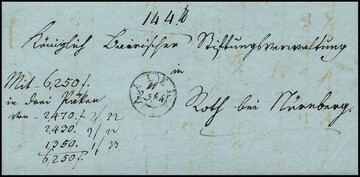 144
Königlich Bairischer Stiftungsverwaltung
in
Roth bei Nürnberg.
Mit 6,250 f.
in drei Päken
von 2,470 f.
2,430.
1,350.
6,250 f.